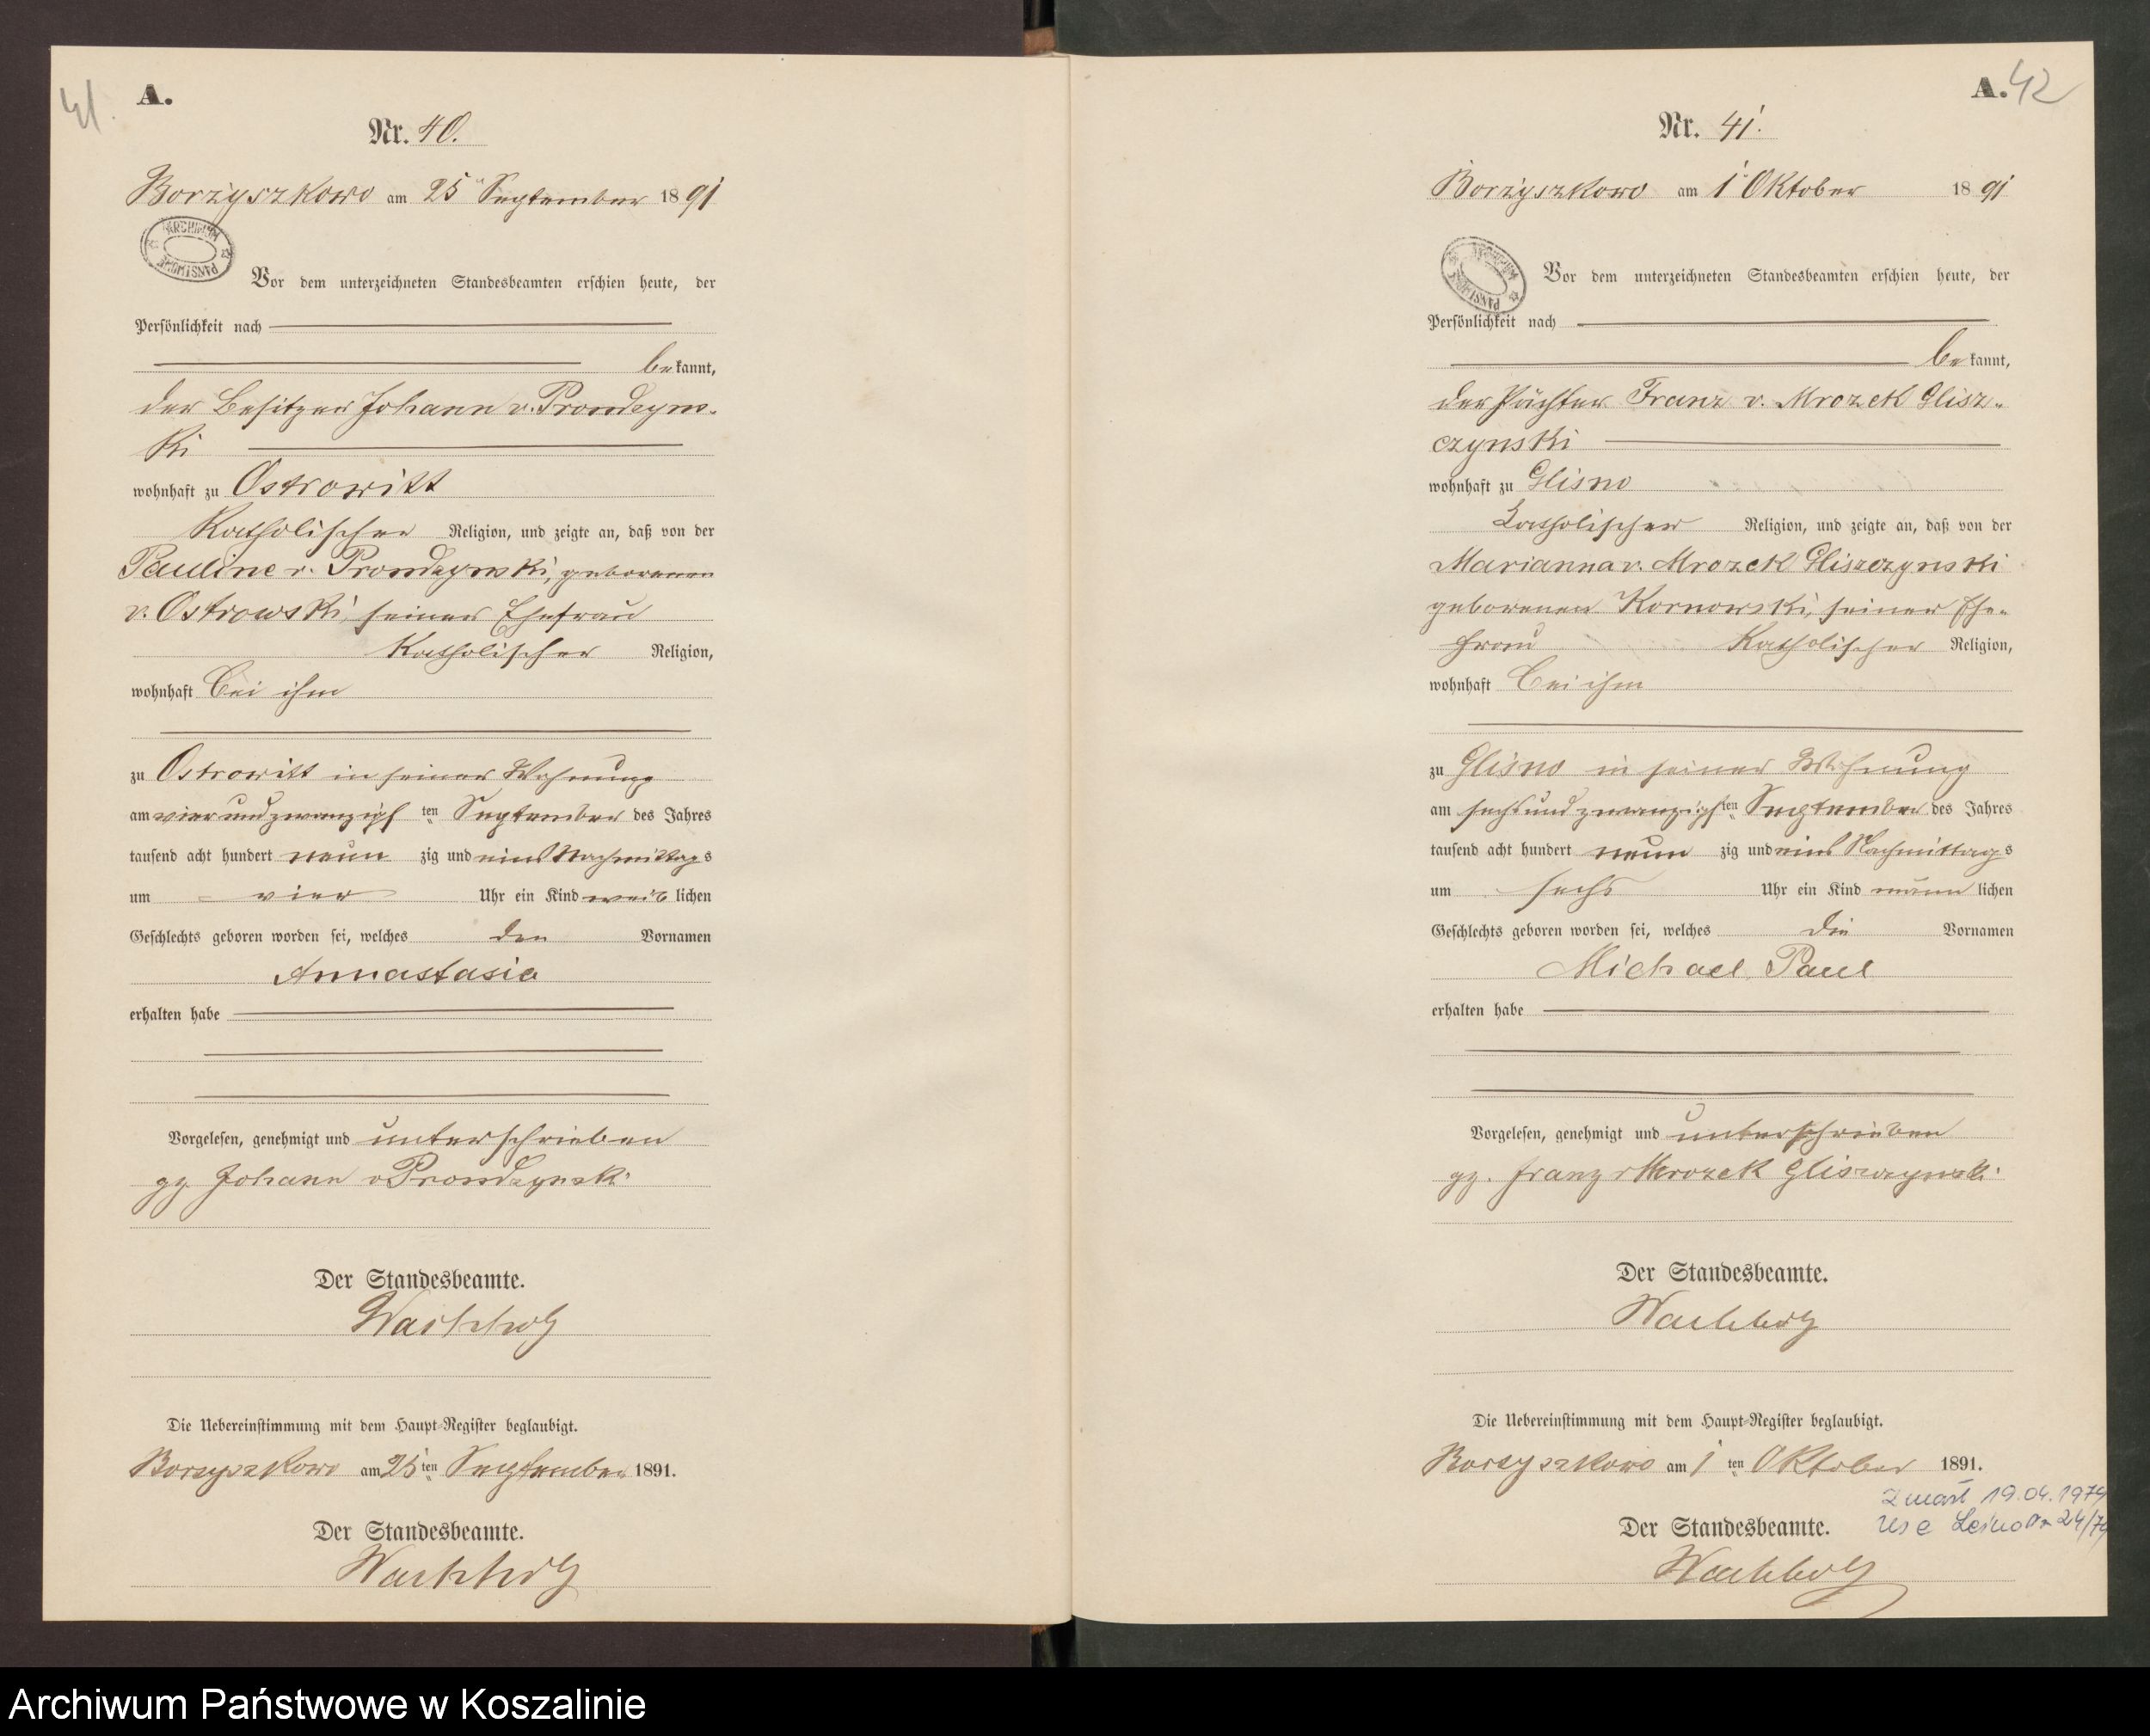 41.
A.
Nr. 40.
Borzyszkowo am 25 September 1891
ARCHIWUM PAŃSTWOWE
Vor dem unterzeichneten Standesbeamten erschien heute, der
Persönlichkeit nach
bekannt,
der Besitzer Johann v. Prondzyns-
ki
wohnhaft zu Ostrowitt
Katholischer Religion, und zeigte an, daß von der
Pauline v. Prondzynski, geborenen
v. Ostrowski, seiner Ehefrau
Katholischer Religion,
wohnhaft bei ihm
zu Ostrowitt in seiner Wohnung
am vierundzwanzigsten September des Jahres
tausend acht hundert neunzig und eins Nachmittags
um vier Uhr ein Kind weiblichen
Geschlechts geboren worden sei, welches den Vornamen
Annastasia
erhalten habe
Vorgelesen, genehmigt und unterschrieben
gz Johann v Prondzynski
Der Standesbeamte.
Wachholz
Die Uebereinstimmung mit dem Haupt-Register beglaubigt.
Borzyszkowo am 25ten September 1891.
Der Standesbeamte.
Wachholz
A. 42
Nr. 41.
Borzyszkowo am 1 Oktober 1891
ARCHIWUM PAŃSTWOWE
Vor dem unterzeichneten Standesbeamten erschien heute, der
Persönlichkeit nach
bekannt,
der Pächter Franz v. Mrozek Glisz-
czynski
wohnhaft zu Glisno
Katholischer Religion, und zeigte an, daß von der
Marianna v. Mrozek Gliszczynski
geborenen Kornowski, seiner Ehe-
frau Katholischer Religion,
wohnhaft bei ihm
zu Glisno in seiner Wohnung
am sechsundzwanzigsten September des Jahres
tausend acht hundert neunzig und eins Nachmittags
um sechs Uhr ein Kind männlichen
Geschlechts geboren worden sei, welches die Vornamen
Michael Paul
erhalten habe
Vorgelesen, genehmigt und unterschrieben
gz. Franz v Mrozek Gliszczynski
Der Standesbeamte.
Wachholz
Die Uebereinstimmung mit dem Haupt-Register beglaubigt.
Borzyszkowo am 1ten Oktober 1891.
zmarł 19.04.1974
Der Standesbeamte. Usc 24/74
Wachholz
Archiwum Państwowe w Koszalinie